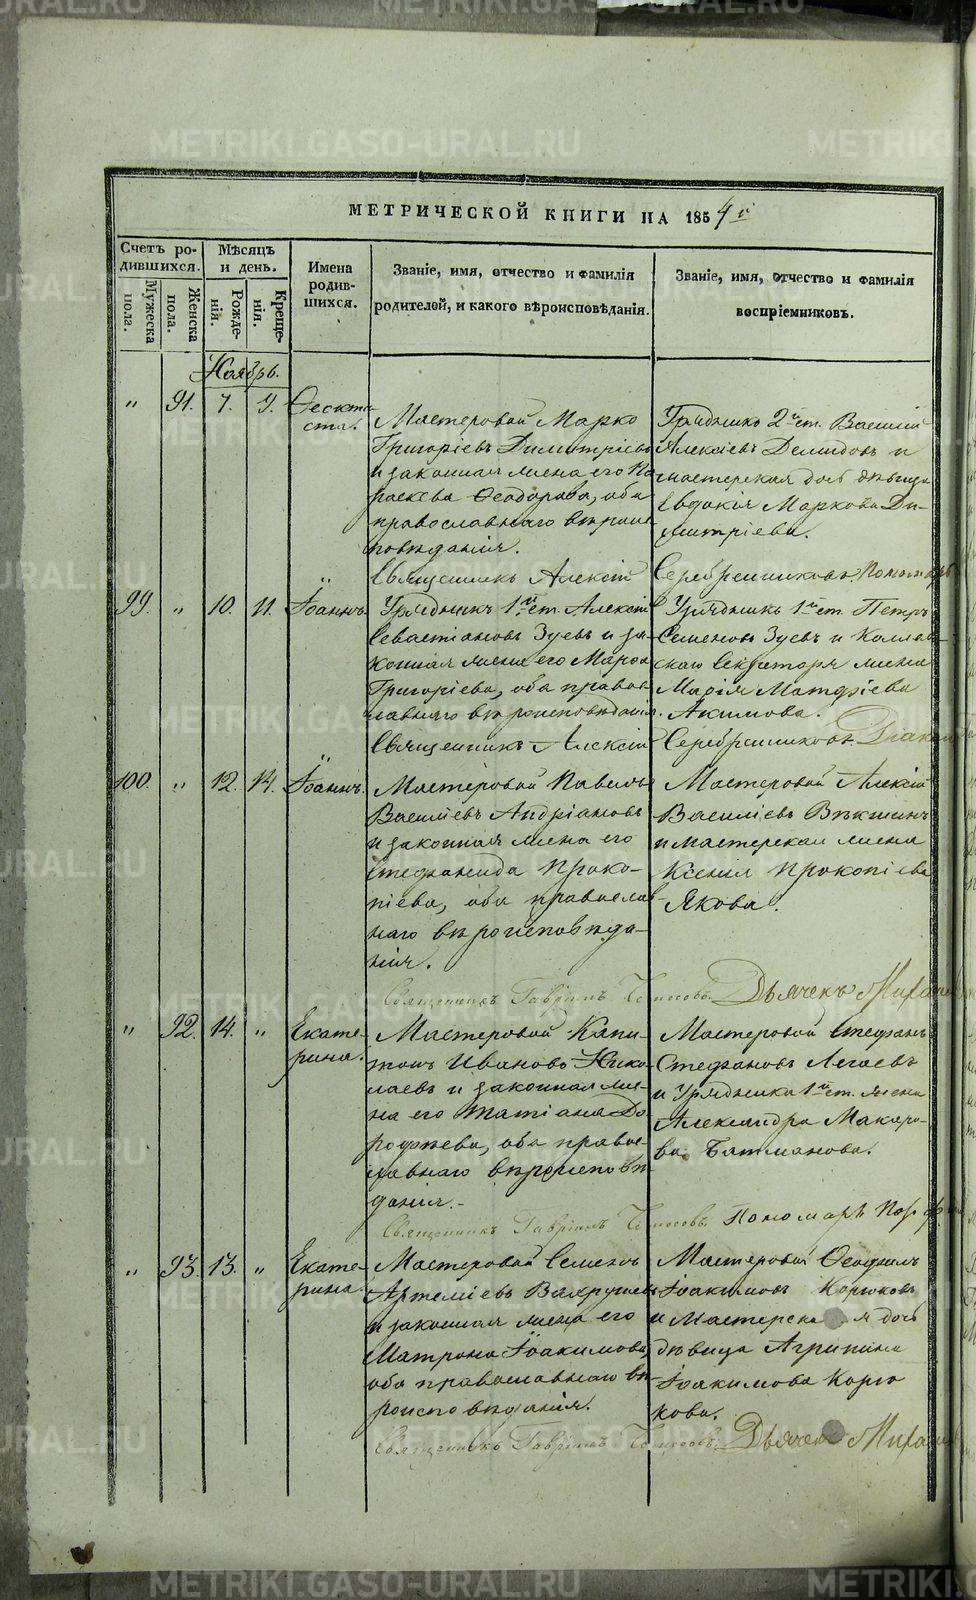 МЕТРИЧЕСКОЙ КНИГИ НА 1854й
Счетъ родившихся.
Мужеска пола.
Женска пола.
Мѣсяцъ и день.
Рожденія.
Крещенія.
Имена родившихся.
Званіе, имя, отчество и фамилія
родителей, и какого вѣроисповѣданія.
Званіе, имя, отчество и фамилія
воспріемниковъ.
Ноябрь.
" 91. 7. 9. Феоктиста.
Мастеровой Марко
Григоріевъ Димитріевъ
и законная жена его Па
раскева Феодорова, оба
православнаго вѣроис
повѣданія.
Урядникъ 2й ст. Василій
Алексіевъ Демидовъ и
мастерская дочь дѣвица
Евдокія Маркова Ди-
митріева.
Священникъ Алексій Серебренниковъ. Пономарь
99. " 10. 11. Іоаннъ.
Урядникъ 1й ст. Алексій
Севастіановъ Зуевъ и за-
конная жена его Марфа
Григоріева, оба правос
лавнаго вѣроисповѣданія.
Урядникъ 1й ст. Петръ
Семеновъ Зуевъ и Коллеж-
скаго Секретаря жена
Марія Матфіева
Акимова.
Священникъ Алексій Серебренниковъ. Діакон
100. " 12. 14. Іоаннъ.
Мастеровой Павелъ
Василіевъ Андріановъ
и законная жена его
Стефанида Проко-
піева, оба православ-
наго вѣроисповѣда-
нія.
Мастеровой Алексій
Василіевъ Вѣкшинъ
и мастерская жена
Ксенія Прокопіева
Якова.
Священникъ Гавріилъ Дьячекъ Михаил
" 92. 14. " Екатерина.
Мастеровой Капи-
тонъ Ивановъ Нико-
лаевъ и законная же-
на его Татіана До
роѳѣева, оба правос-
лавнаго вѣроисповѣ
данія.-
Мастеровой Стефанъ
Стефановъ Легаевъ
и Урядника 1й ст. жена
Александра Макаро-
ва Батманова.
Священникъ Гавріилъ Пономарь Порф
" 93. 13. " Екатерина.
Мастеровой Семенъ
Артеміевъ Вахрушевъ
и законная жена его
Матрона Іоакимова,
оба православнаго вѣ
роисповѣданія.
Мастеровой Феофилъ
Іоакимовъ Корюковъ
и Мастерская дочь
дѣвица Агрипина
Іоакимова Корю
кова.
Священникъ Гавріилъ Дьячек Михаил
METRIKI.GASO-URAL.RU